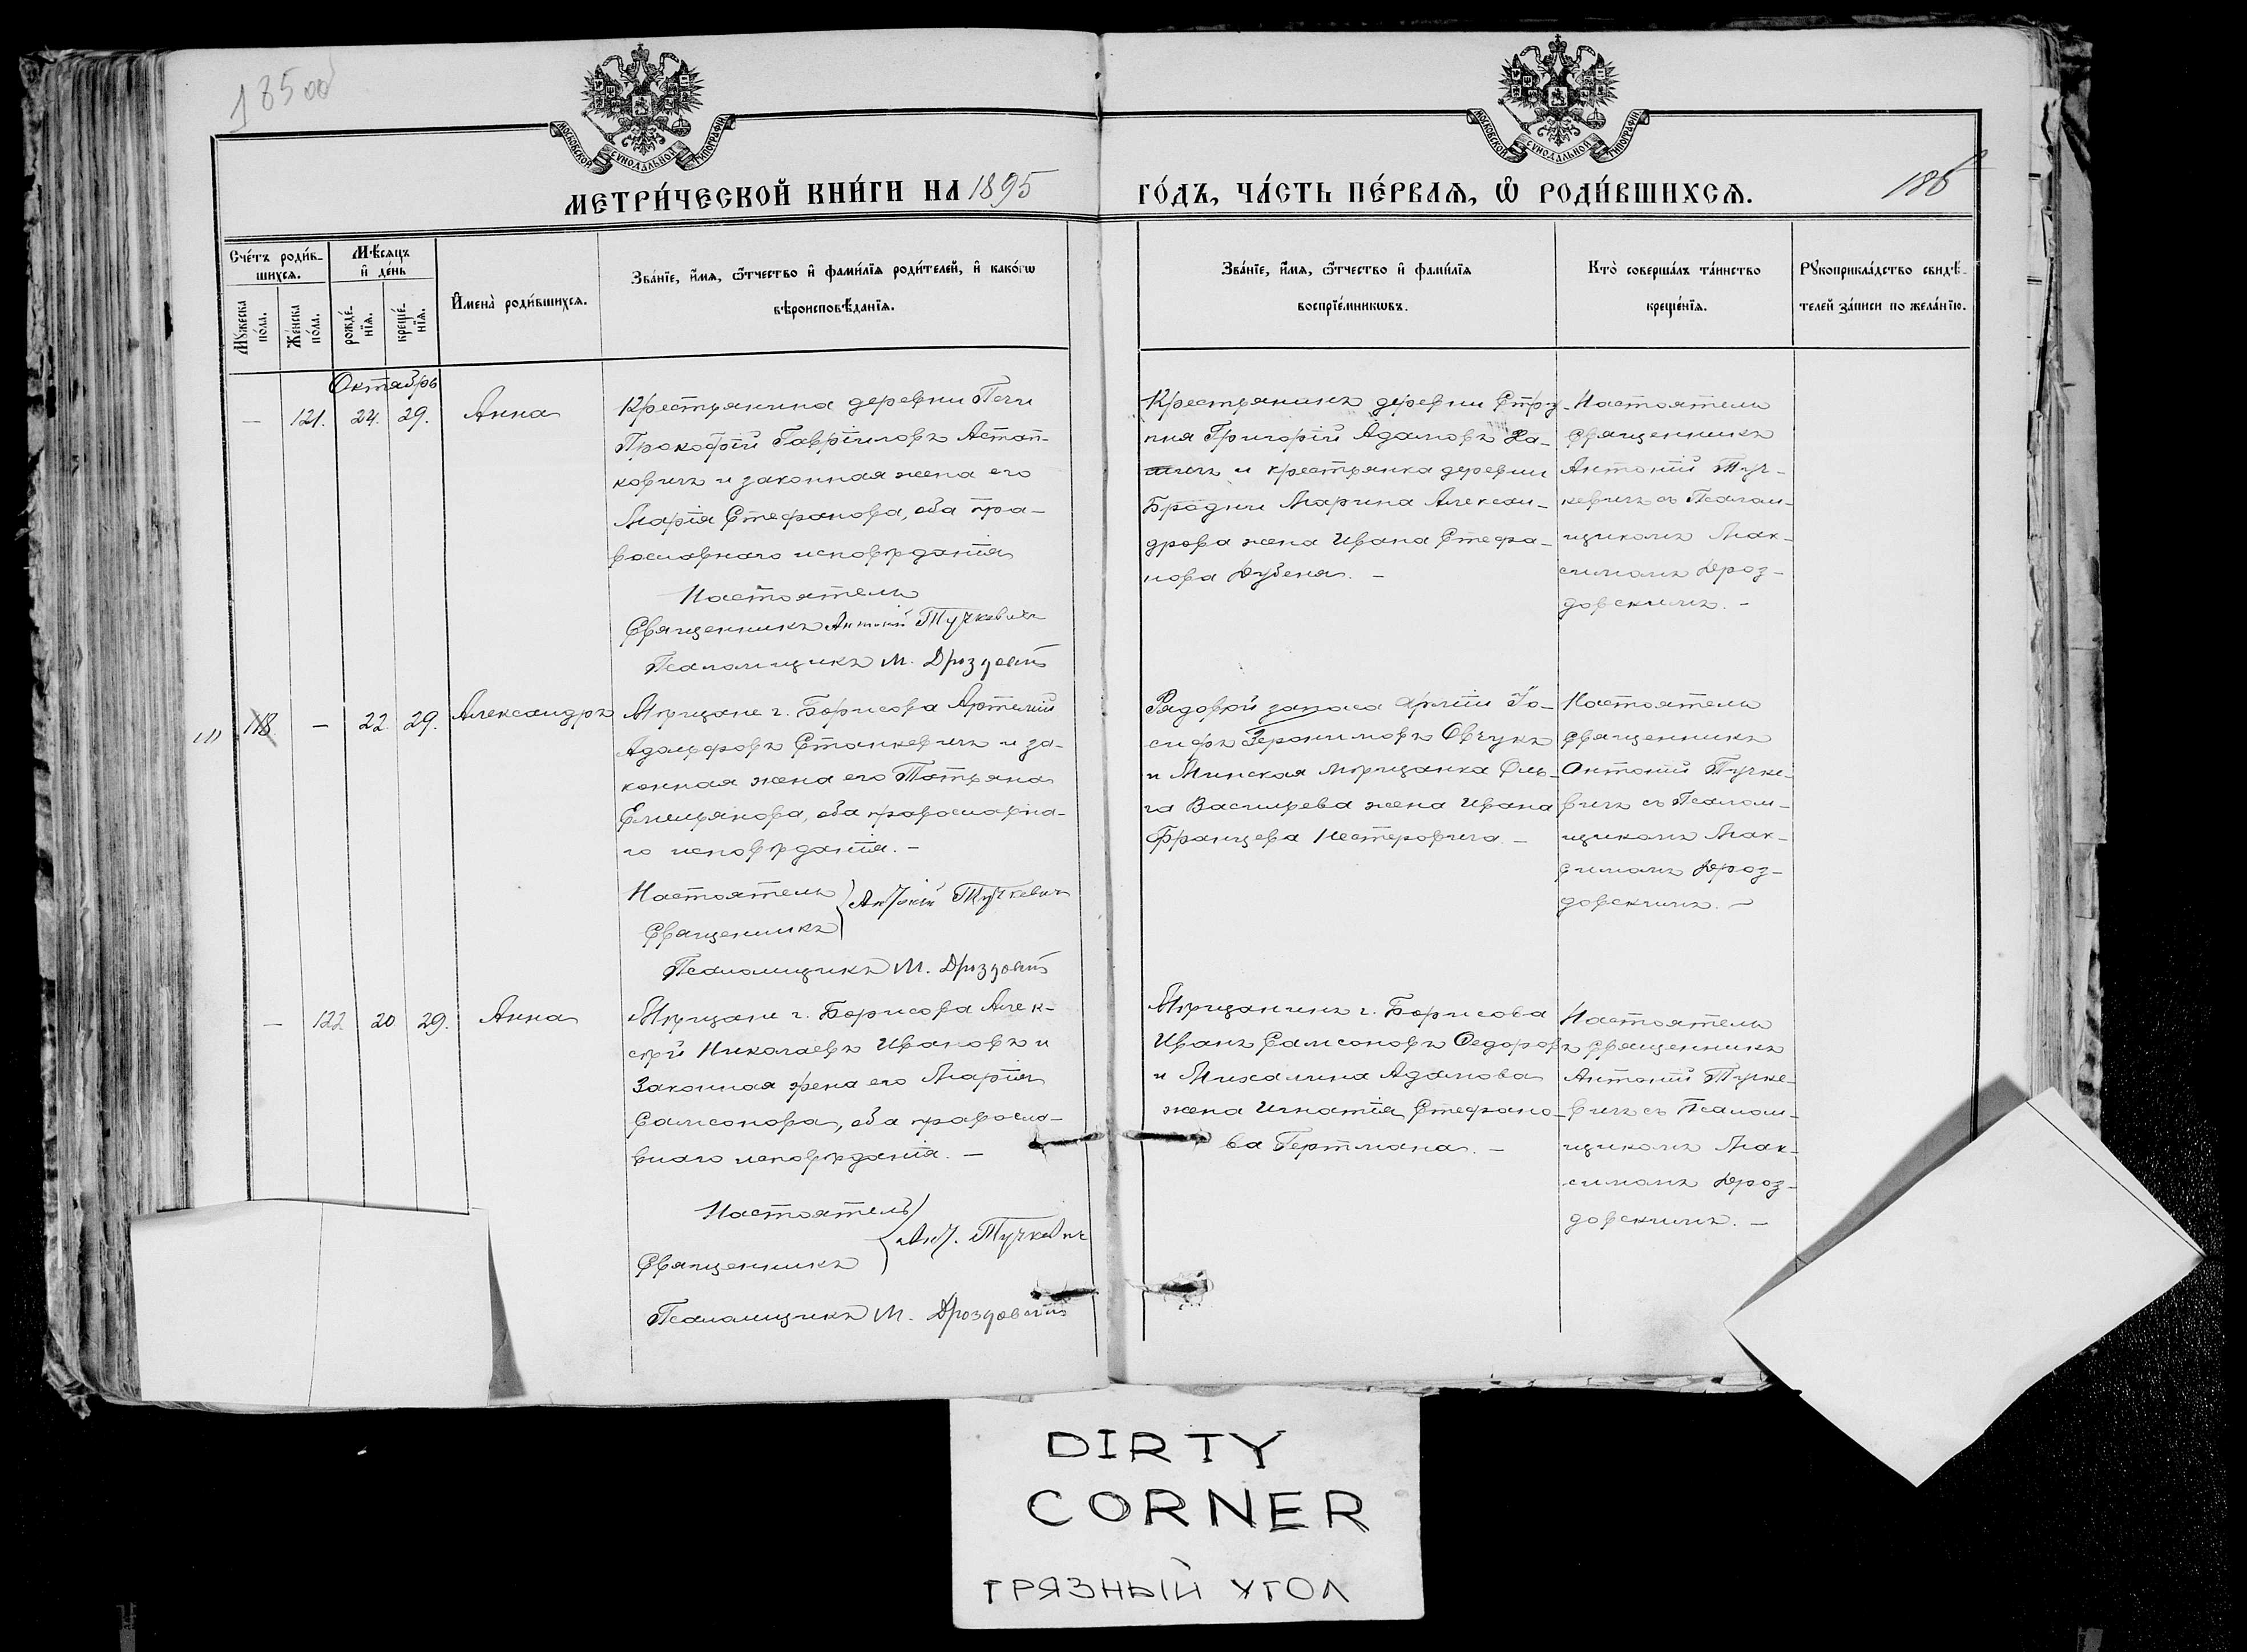 185 об
МОСКОВСКОЙ СѴНОДАЛЬНОЙ ТИПОГРАФІИ
МОСКОВСКОЙ СѴНОДАЛЬНОЙ ТИПОГРАФІИ
МЕТРИ́ЧЕСКОЙ КНИ́ГИ НА 1895
ГО́ДЪ, ЧА́СТЬ ПЕ́РВАѦ, Ѡ҆ РОДИ́ВШИХСѦ.
186
Сче́тъ роди́в-
шихсѧ.
Мꙋ́жеска
по́ла.
Же́нска
по́ла.
Мѣ́сѧцъ
и҆ де́нь
рожде́-
нїѧ.
креще́-
нїѧ.
И҆мена̀ роди́вшихсѧ.
Зва́нїе, и҆́мѧ, ѻ҆́тчество и҆ фами́лїѧ роди́телей, и҆ како́гѡ
вѣроисповѣ́данїѧ.
Зва́нїе, и҆́мѧ, ѻ҆́тчество и҆ фами́лїѧ
воспрїе́мникѡвъ.
Кто̀ соверша́лъ та́инство
креще́нїѧ.
Рꙋкоприкла́дство свидѣ́-
телей за́писи по жела́нїю.
Октябрь
— 121. 24. 29. Анна
Крестьянина деревни Печи
Прокофій Гавріиловъ Астап-
ковичъ и законная жена его
Марія Стефанова, оба пра-
вославнаго исповѣданія
Настоятель
Священникъ Антоній Тучкевичъ
Псаломщикъ М. Дроздовскій
Крестьянинъ деревни
Григорій Адамовъ
и крестьянка деревни
Бродни Марина Алексан-
дрова жена Ивана Стефа-
нова Дубеня. —
Настоятель
Священникъ
Антоній Туч-
кевичъ съ Псалом-
щикомъ Мак-
симомъ Дроз-
довскимъ. —
111 118 — 22 29. Александръ
Мѣщане г. Борисова Артемій
Адольфовъ Станкевичъ и за-
конная жена его Татьяна
Емельянова, оба православна-
го исповѣданія. —
Настоятель
Священникъ } Антоній Тучкевичъ
Псаломщикъ М. Дроздовскій
Рядовой запаса арміи Іо-
сифъ Овчукъ
и Минская мѣщанка Оль-
га Васильева жена Ивана
Францева Нестеровича. —
Настоятель
Священникъ
Антоній Тучке-
вичъ съ Псалом-
щикомъ Мак-
симомъ Дроз-
довскимъ. —
— 122 20 29. Анна
Мѣщане г. Борисова Алек-
сѣй Николаевъ Ивановъ и
законная жена его Марія
Самсонова, оба правосла-
внаго исповѣданія. —
Настоятель
Священникъ } Ант. Тучкевичъ
Псаломщикъ М. Дроздовскій
Мѣщанинъ г. Борисова
Иванъ Самсоновъ Ѳедоровъ
и Михалина Адамова
жена Игнатія Стефано-
ва Гертмана. —
Настоятель
Священникъ
Антоній Тучке-
вичъ съ Псалом-
щикомъ Мак-
симомъ Дроз-
довскимъ. —
DIRTY
CORNER
ГРЯЗНЫЙ УГОЛ